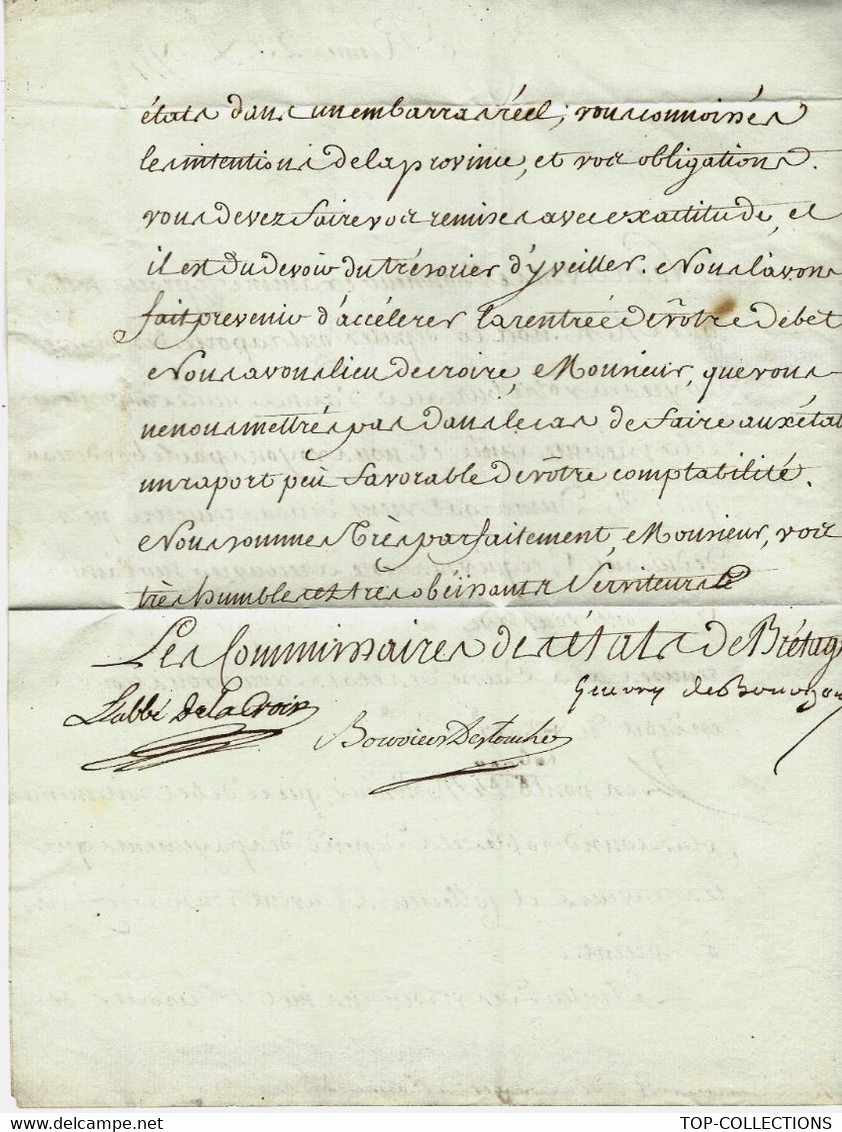 états dans un embarras réel; vous connoissés
les intentions de la province, et vos obligations.
vous devez faire vos remises avec exactitude, et
il est du devoir du trésorier d'y veiller. Nous l'avons
fait prevenir d'accélerer la rentrée de vôtre debet
Nous avons lieu de croire, Monsieur, que vous
ne nous mettrés pas dans le cas de faire aux état
un raport peu favorable de vôtre comptabilité.
Nous sommes très parfaitement, Monsieur, vos
très humbles et très obéissants Serviteurs
Les Commissaires des états de Bretag
L'abbé de la Croix
Bouvier Destouches
TOP-COLLECTIONS